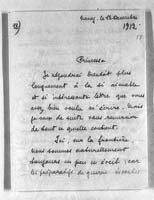 Nancy, le 18 Décembre
1912.
Princesse
Je répondrai bientôt plus
longuement à la si aimable
et si intéressante lettre que vous
avez bien voulu m'écrire, mais
je
de suite vous remercier
de tout
Ici, sur la frontière
nous sommes naturellement
toujours un peu en éveil, car
les préparatifs de guerre